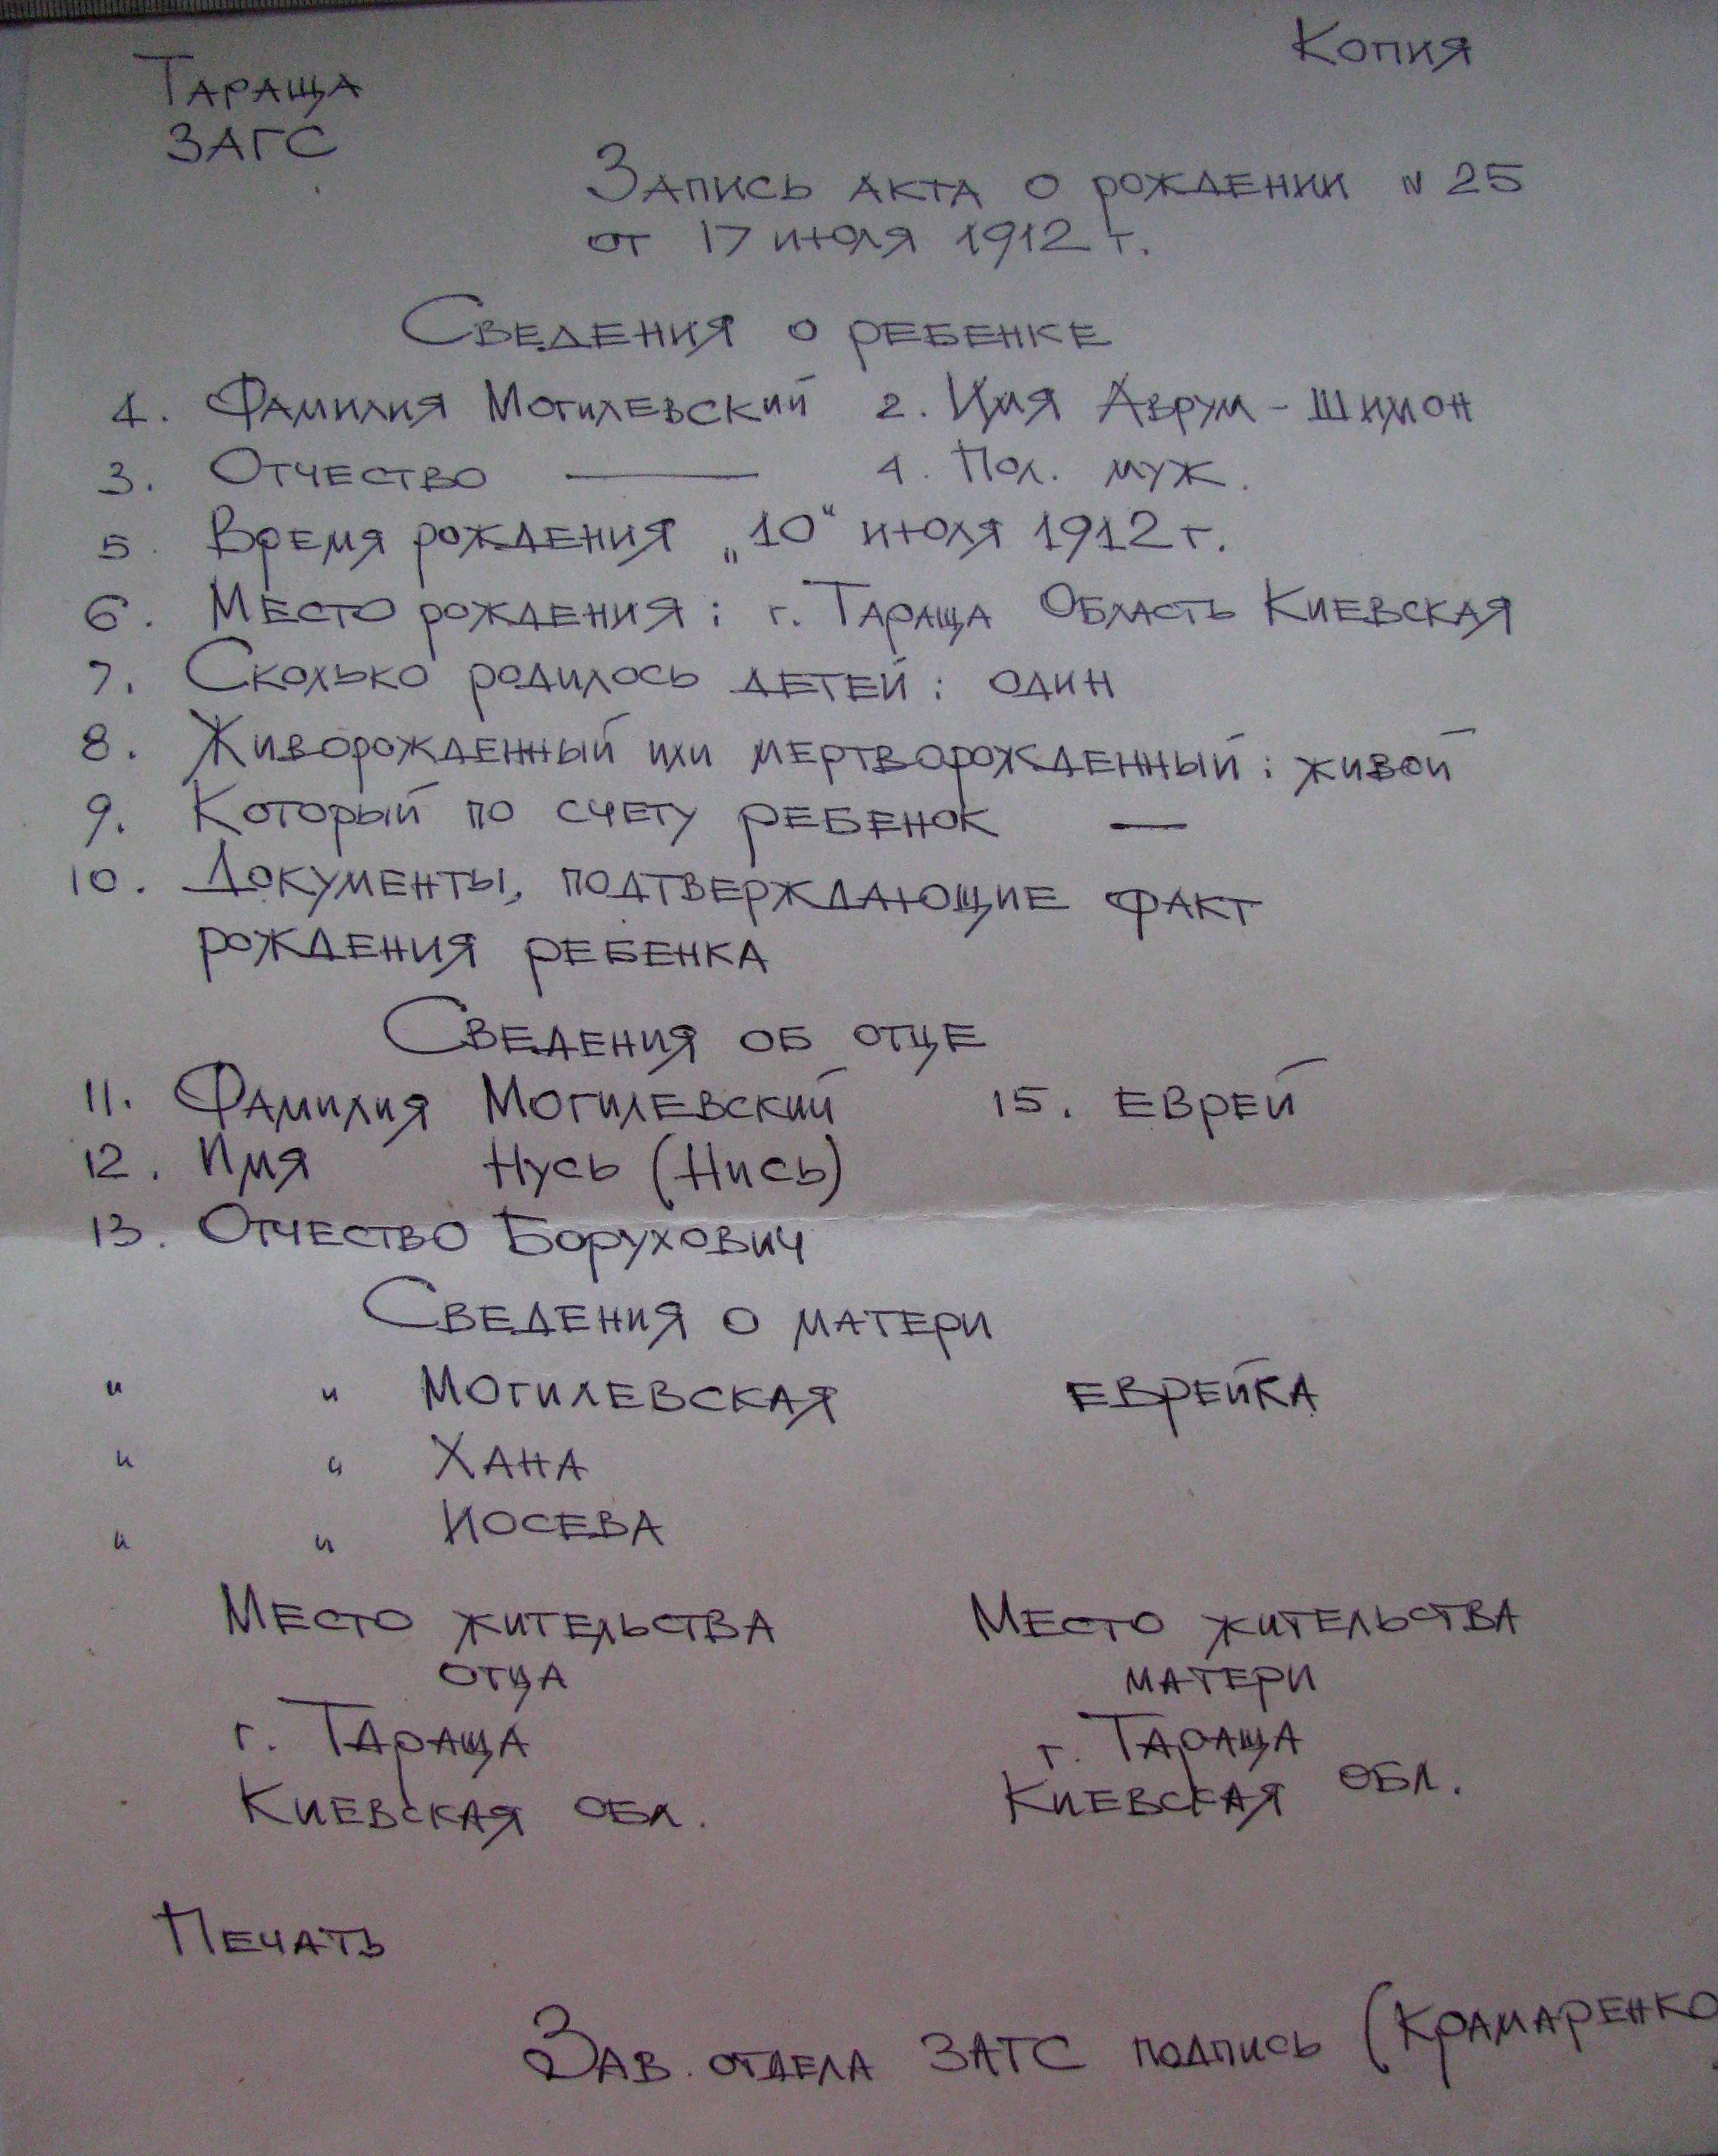 Копия
Тараща
ЗАГС
Запись акта о рождении N 25
от 17 июля 1912 г.
Сведения о ребенке
1. Фамилия Могилевский 2. Имя Аврум - Шимон
3. Отчество — 4. Пол. муж.
5 Время рождения „10“ июля 1912 г.
6. Место рождения: г. Тараща Область Киевская
7. Сколько родилось детей: один
8. Живорожденный или мертворожденный: живой
9. Который по счету ребенок —
10. Документы, подтверждающие факт
рождения ребенка
Сведения об отце
11. Фамилия Могилевский 15. еврей
12. Имя Нусь (Нись)
13. Отчество Борухович
Сведения о матери
" " Могилевская еврейка
" " Хана
" " Иосева
Место жительства Место жительства
отца матери
г. Тараща г. Тараща
Киевская обл. Киевская обл.
Печать
Зав. отдела ЗАГС подпись (Крамаренко